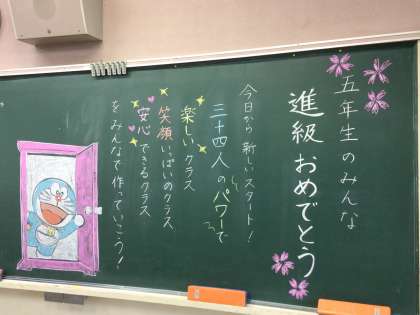 五年生のみんな
進級おめでとう
今日から新しいスタート!
三十四人のパワーで
楽しいクラス
笑顔いっぱいのクラス
安心できるクラス
をみんなで作っていこう!